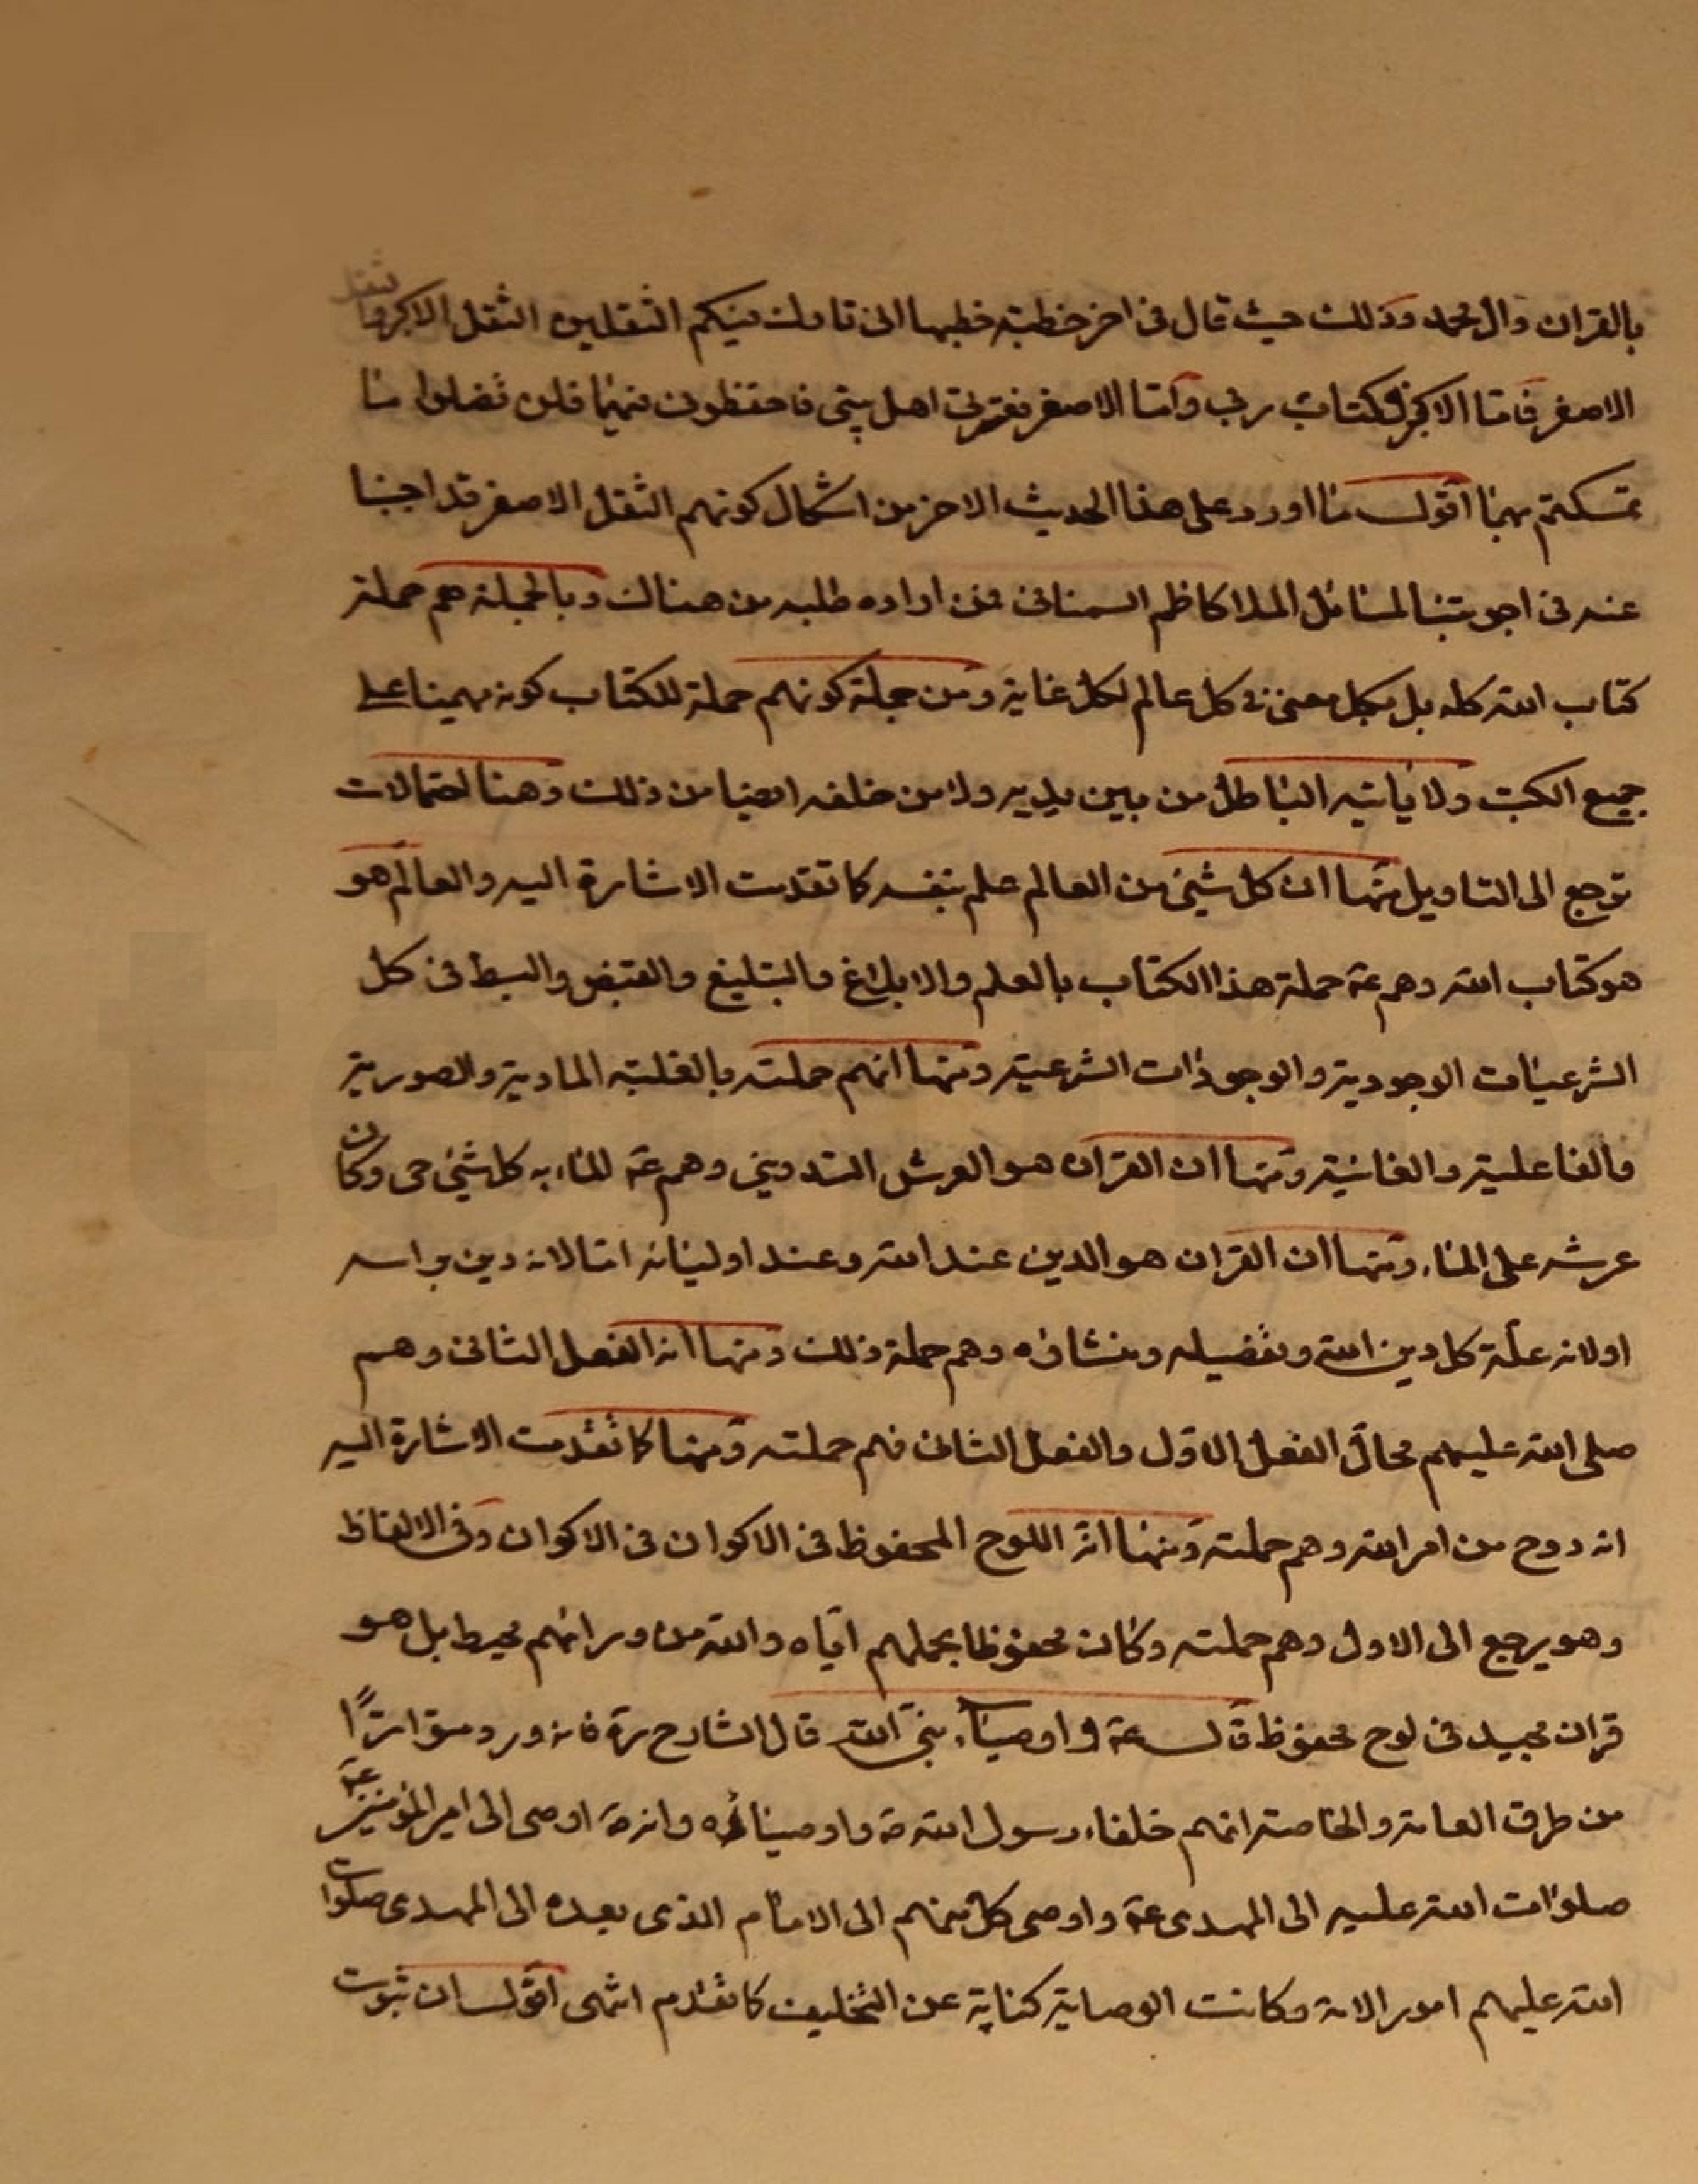 بالقران وال محمد وذلك حيث قال فى اخر خطبة خطبها انى تارك فيكم الثقلين الثقل الاكبر والثقل
الاصغر فاما الاكبر فكتاب ربى واما الاصغر فعترتى اهل بيتى فاحفظونى فيهما فلن تضلوا ما
تمسكتم بهما اقول ما اورد على هذا الحديث الاخر من اشكال كونهم الثقل الاصغر قد اجبنا
عنه فى اجوبتنا لمسائل الملا كاظم السمنانى فمن اراده طلبه من هناك وبالجملة هم حملة
كتاب الله كله بل بكل معنى فى كل عالم لكل غاية ومن جملة كونهم حملة للكتاب كونه مهيمنا على
جميع الكتب ولا ياتيه الباطل من بين يديه ولا من خلفه ايضا من ذلك وهنا احتمالات
ترجع الى التاويل منها ان كل شيئ من العالم علم بنفسه كما تقدمت الاشارة اليه والعالم هو
هو كتاب الله وهم عۤ حملة هذا الكتاب بالعلم والابلاغ والتبليغ والقبض والبسط فى كل
الشرعيات الوجودية والوجودات الشرعية ومنها انهم حملته بالعلية المادية والصورية
والفاعلية والغائية ومنها ان القران هو العرش التدوينى وهم عۤ الماء به كل شيئ حى وكان
عرشه على الماء ومنها ان القران هو الدين عند الله وعند اوليائه اما لانه دين براسه
او لانه علة كل دين الله وتفصيله ومنشاؤه وهم حملة ذلك ومنها انه الفعل الثانى وهم
صلى الله عليهم محال الفعل الاول والفعل الثانى فهم حملته ومنها كما تقدمت الاشارة اليه
انه روح من امر الله وهم حملته ومنها انه اللوح المحفوظ فى الاكوان فى الاكوان وفى الالفاظ
وهو يرجع الى الاول وهم حملته وكان محفوظا بحملهم اياه والله من ورائهم محيط بل هو
قران مجيد فى لوح محفوظ قال عۤ واوصياء نبى الله قال الشارح رۤه فانه ورد متواترًا
من طرق العامة والخاصة انهم خلفاء رسول الله صۤ واوصيائه وانه صۤ اوصى الى امير المؤمنين عۤ
صلوات الله عليه الى المهدى عۤ واوصى كل منهم الى الامام الذى بعده الى المهدى صلوات
الله عليهم امور الامة وكانت الوصاية كناية عن التخليف كما تقدم انتهى اقول ان ثبوت